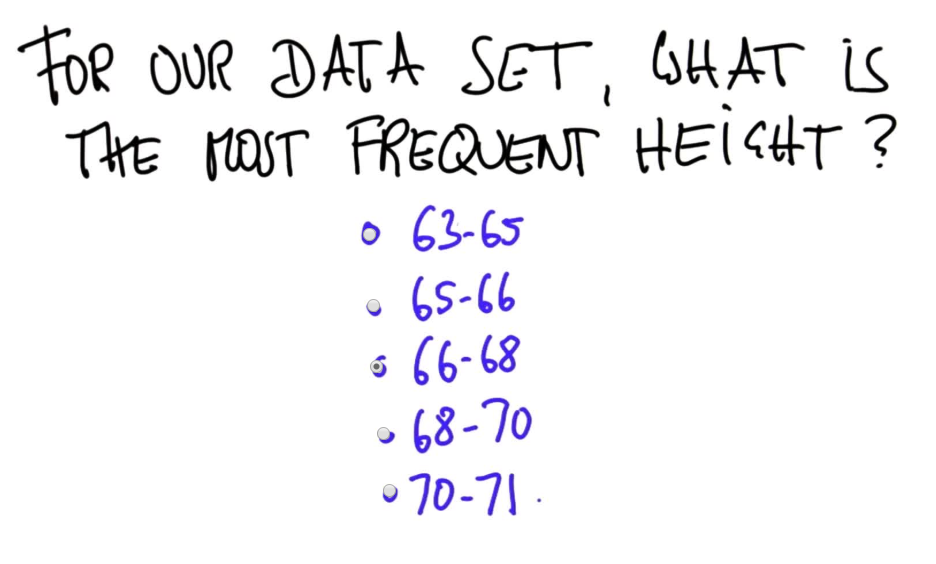 FOR OUR DATA SET, WHAT IS
THE MOST FREQUENT HEIGHT?
63-65
65-66
66-68
68-70
70-71